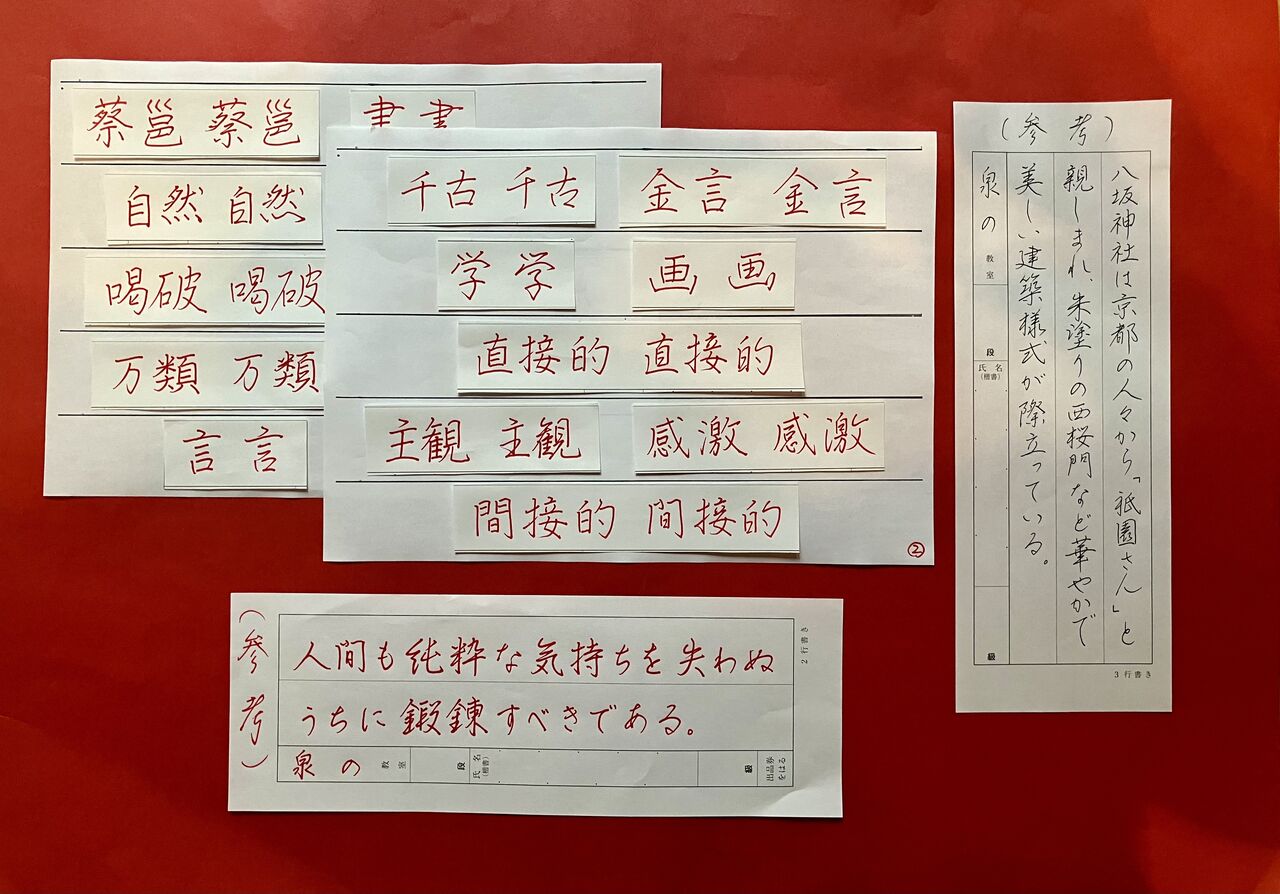 蔡邕 蔡邕 書 書
自然 自然
喝破 喝破
万類 万類
言 言
千古 千古 金言 金言
学 学 画 画
直接的 直接的
主観 主観 感激 感激
間接的 間接的
②
(参考)
八坂神社は京都の人々から「祇園さん」と
親しまれ、朱塗りの西桜門など華やかで
美しい建築様式が際立っている。
泉の 教室 段 氏名(楷書) 級
3行書き
(参考)
2行書き
人間も純粋な気持ちを失わぬ
うちに鍛錬すべきである。
泉の 教室 段 氏名(楷書) 級 出品券をはる